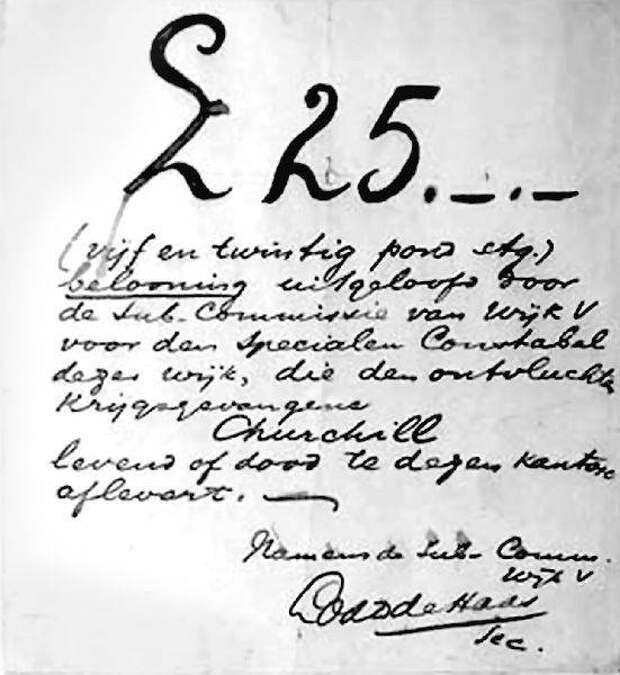 £25.–.–
(vijf en twintig pond stg.)
belooning uitgeloofd door
de Sub-Commissie van Wijk V
voor den Specialen Constabel
dezer wijk, die den ontvluchten
Krijgsgevangene
Churchill
levend of dood te dezen kantore
aflevert.
Namens de Sub-Comm.
Wijk V
de Haas
Sec.